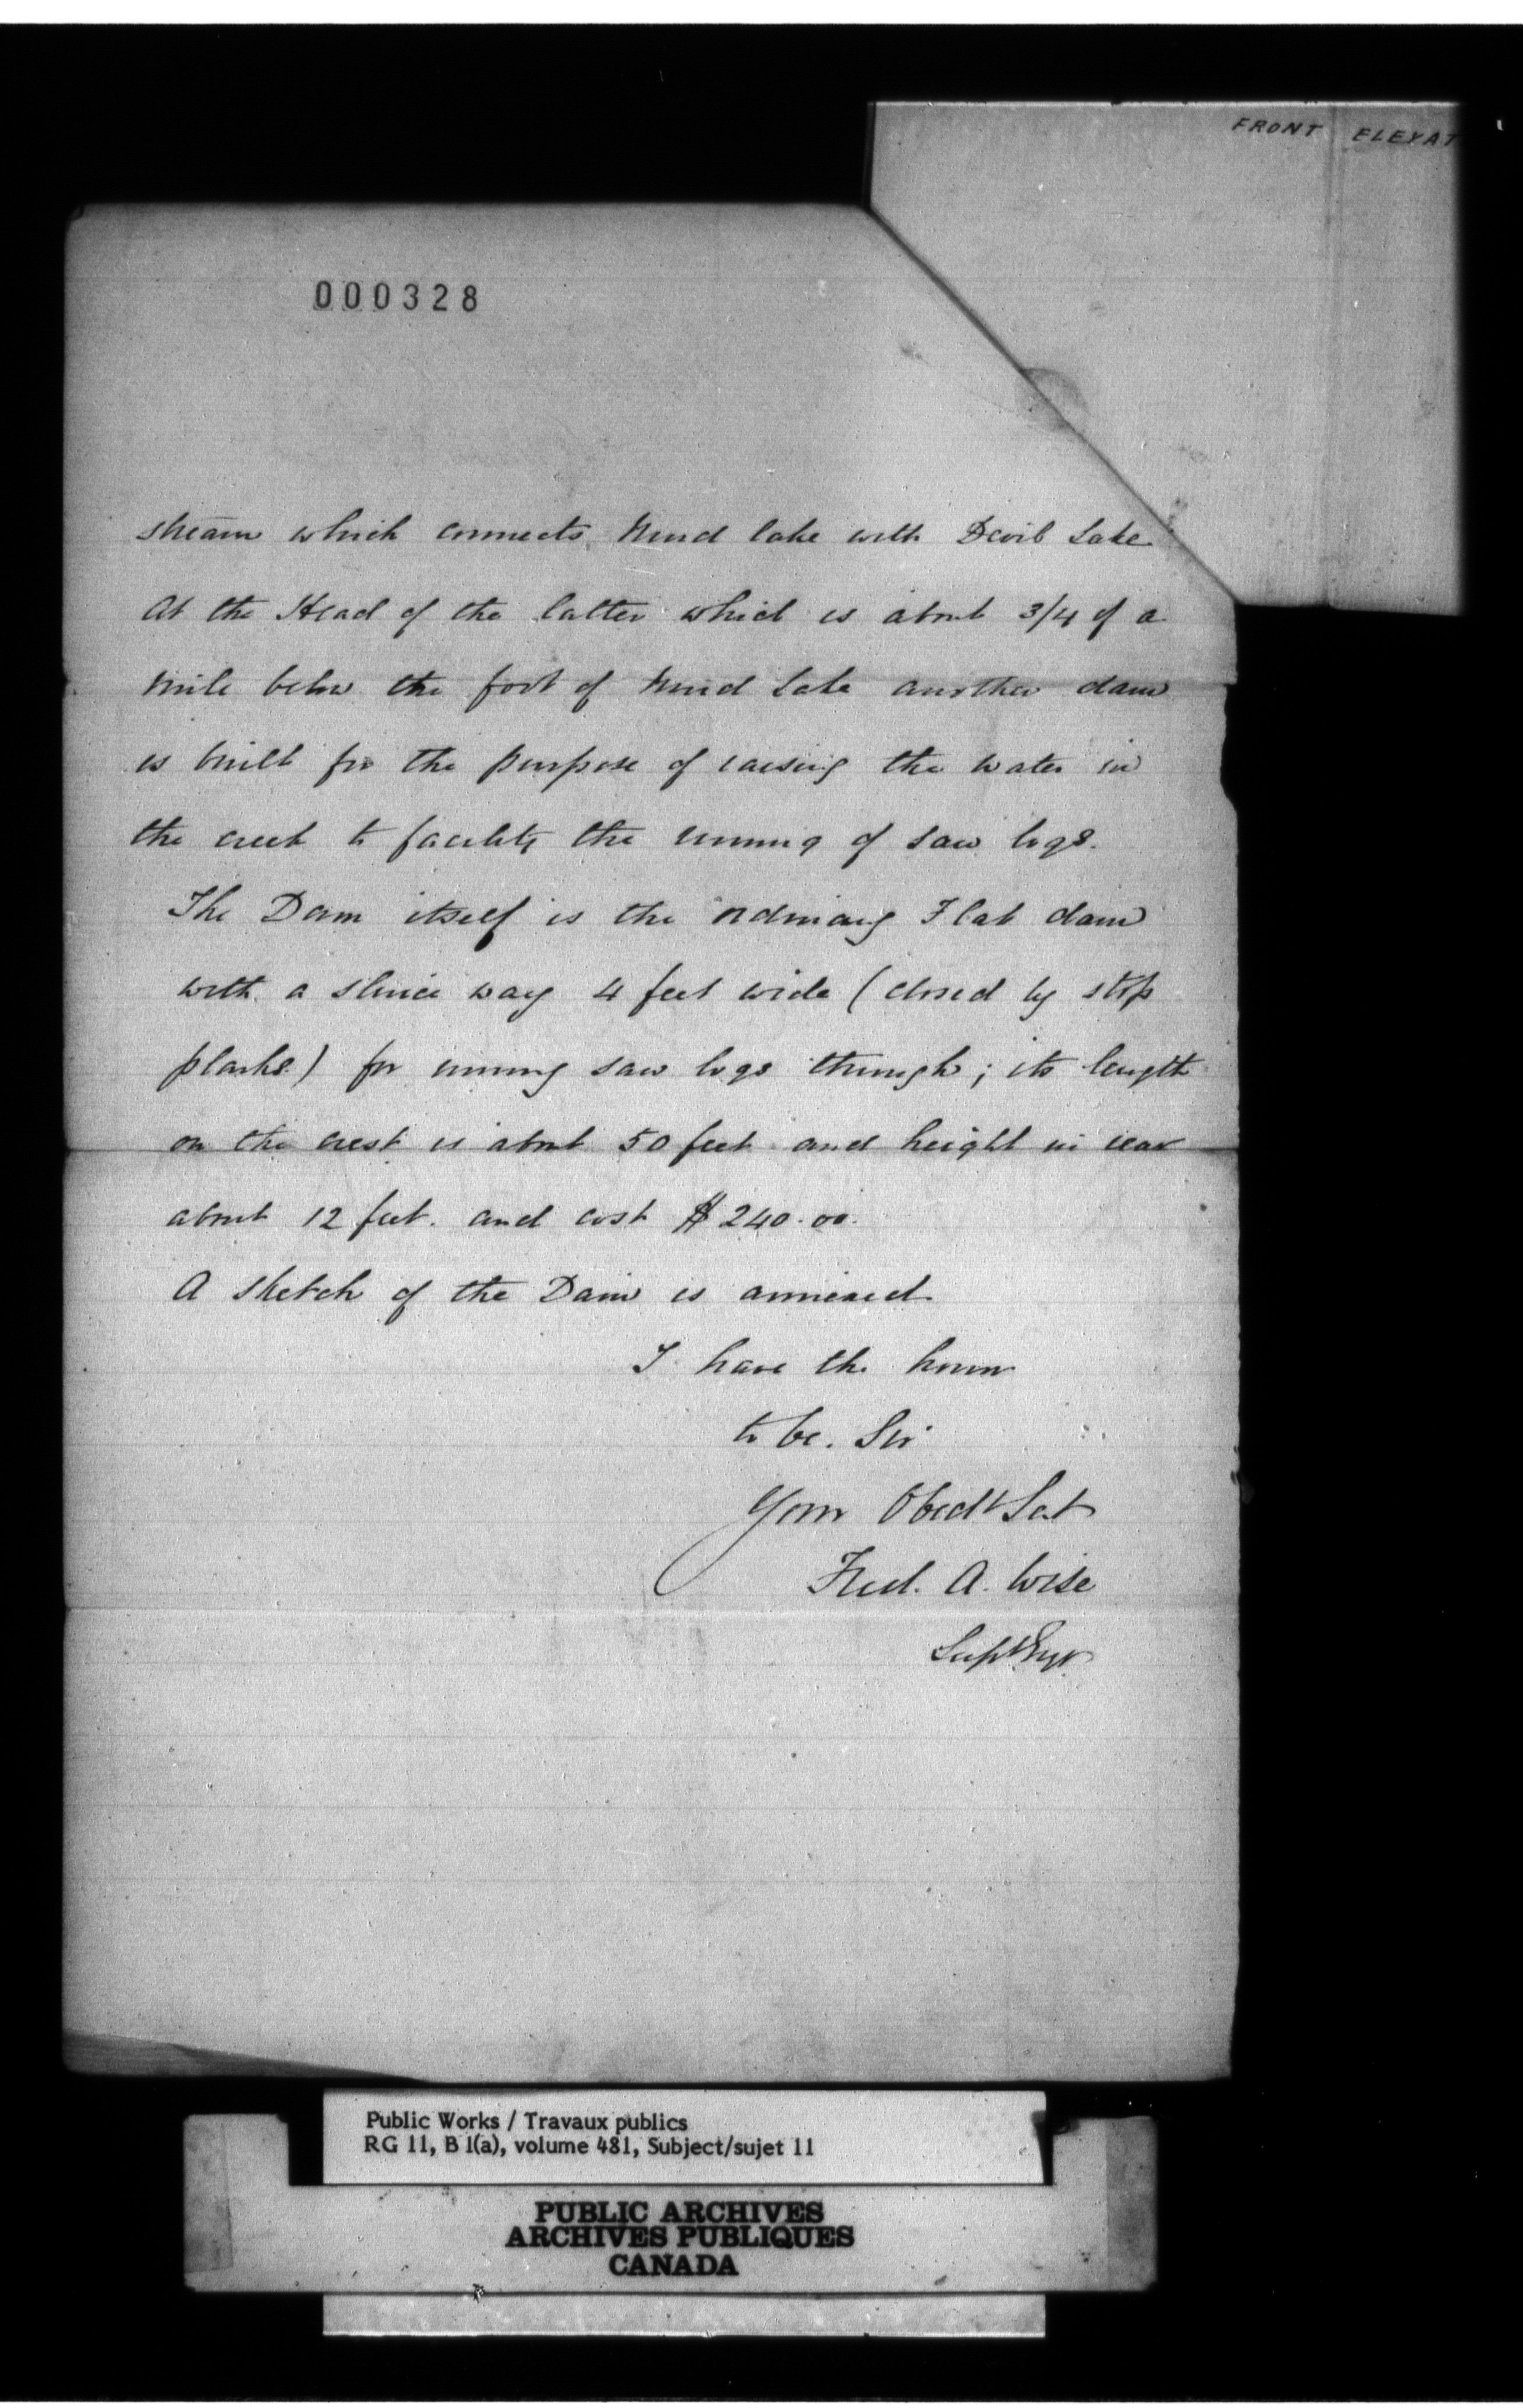 FRONT ELEVAT
000328
stream which connects Mud lake with Devil Lake
At the Head of the latter which is about 3/4 of a
mile below the foot of Mud Lake another dam
is built for the purpose of raising the water in
the creek to facility the running of saw logs.
The Dam itself is the ordinary Flat dam
with a sluice way 4 feet wide (closed by stop
planks) for running saw logs through; its length
on the crest is about 50 feet and height in rear
about 12 feet. and cost $240.00.
A sketch of the Dam is annexed
I have the honor
to be. Sir
Your Obedt Svt
Fred. A. Wise
Supt Engr
Public Works / Travaux publics
RG 11, B 1(a), volume 481, Subject/sujet 11
PUBLIC ARCHIVES
ARCHIVES PUBLIQUES
CANADA